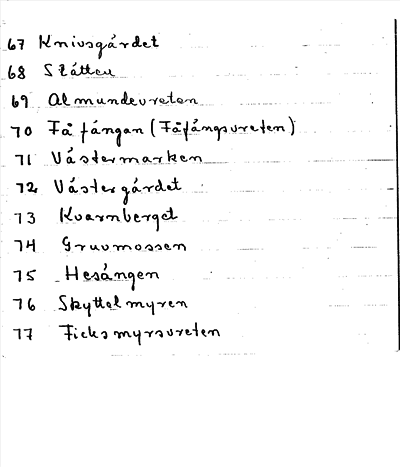 67 Knivsgárdet
68 Slátten
69 Almundevreten
70 Få fángan (Fåfángsvreten)
71 Vástermarken
72 Västergárdet
73 Kvarnberget
74 Gruvmossen
75 Hesángen
76 Skyttelmyren
77 Ficksmyrsvreten